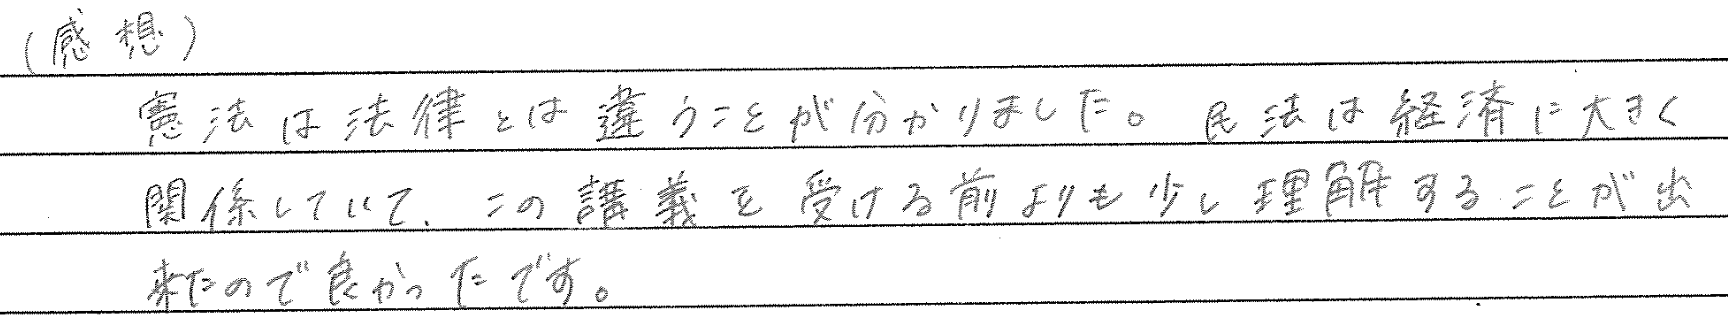 (感想)
憲法は法律とは違うことが分かりました。民法は経済に大きく
関係していて、この講義を受ける前よりも少し理解することが出
来たので良かったです。